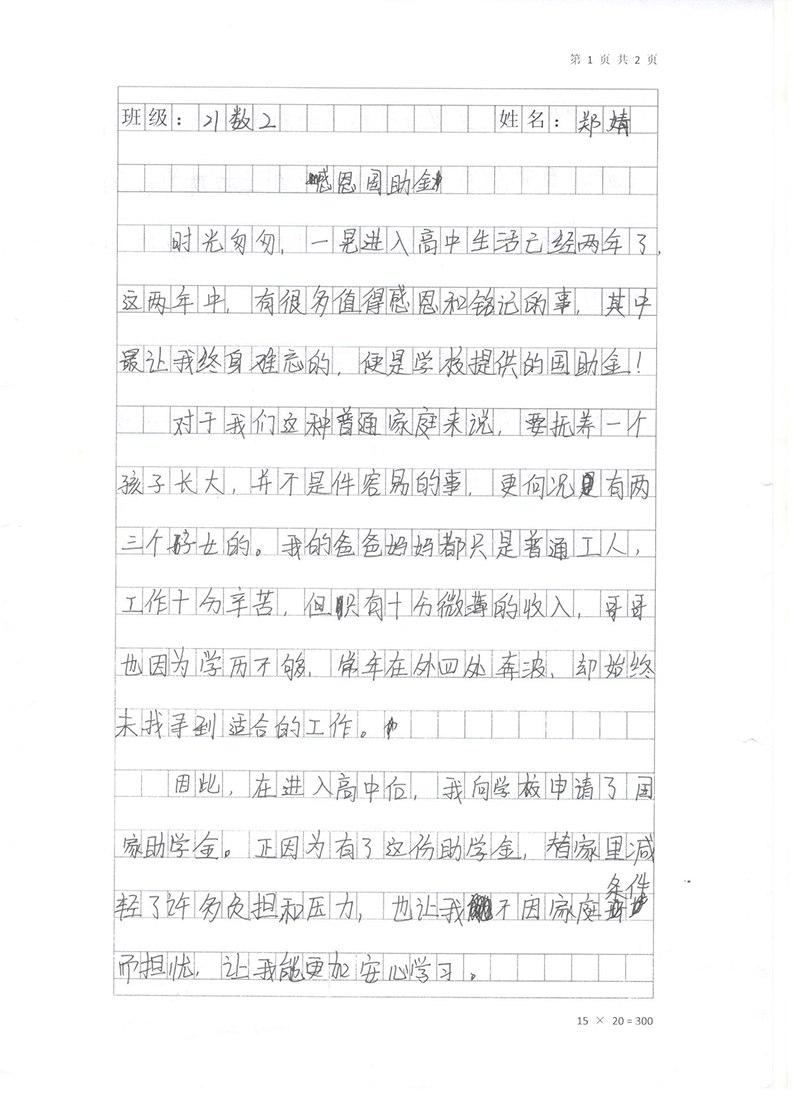 第 1 页 共 2 页
班级：21数2 姓名：郑婧
感恩国助金
时光匆匆，一晃进入高中生活已经两年了，
这两年中，有很多值得感恩和铭记的事，其中
最让我终身难忘的，便是学校提供的国助金！
对于我们这种普通家庭来说，要抚养一个
孩子长大，并不是件容易的事，更何况是有两
三个子女的。我的爸爸妈妈都只是普通工人，
工作十分辛苦，但只有十分微薄的收入，哥哥
也因为学历不够，常年在外四处奔波，却始终
未找寻到适合的工作。
因此，在进入高中后，我向学校申请了国
家助学金。正因为有了这份助学金，替家里减
轻了许多负担和压力，也让我不因家庭条件
而担忧，让我能更加安心学习。
15 × 20 = 300